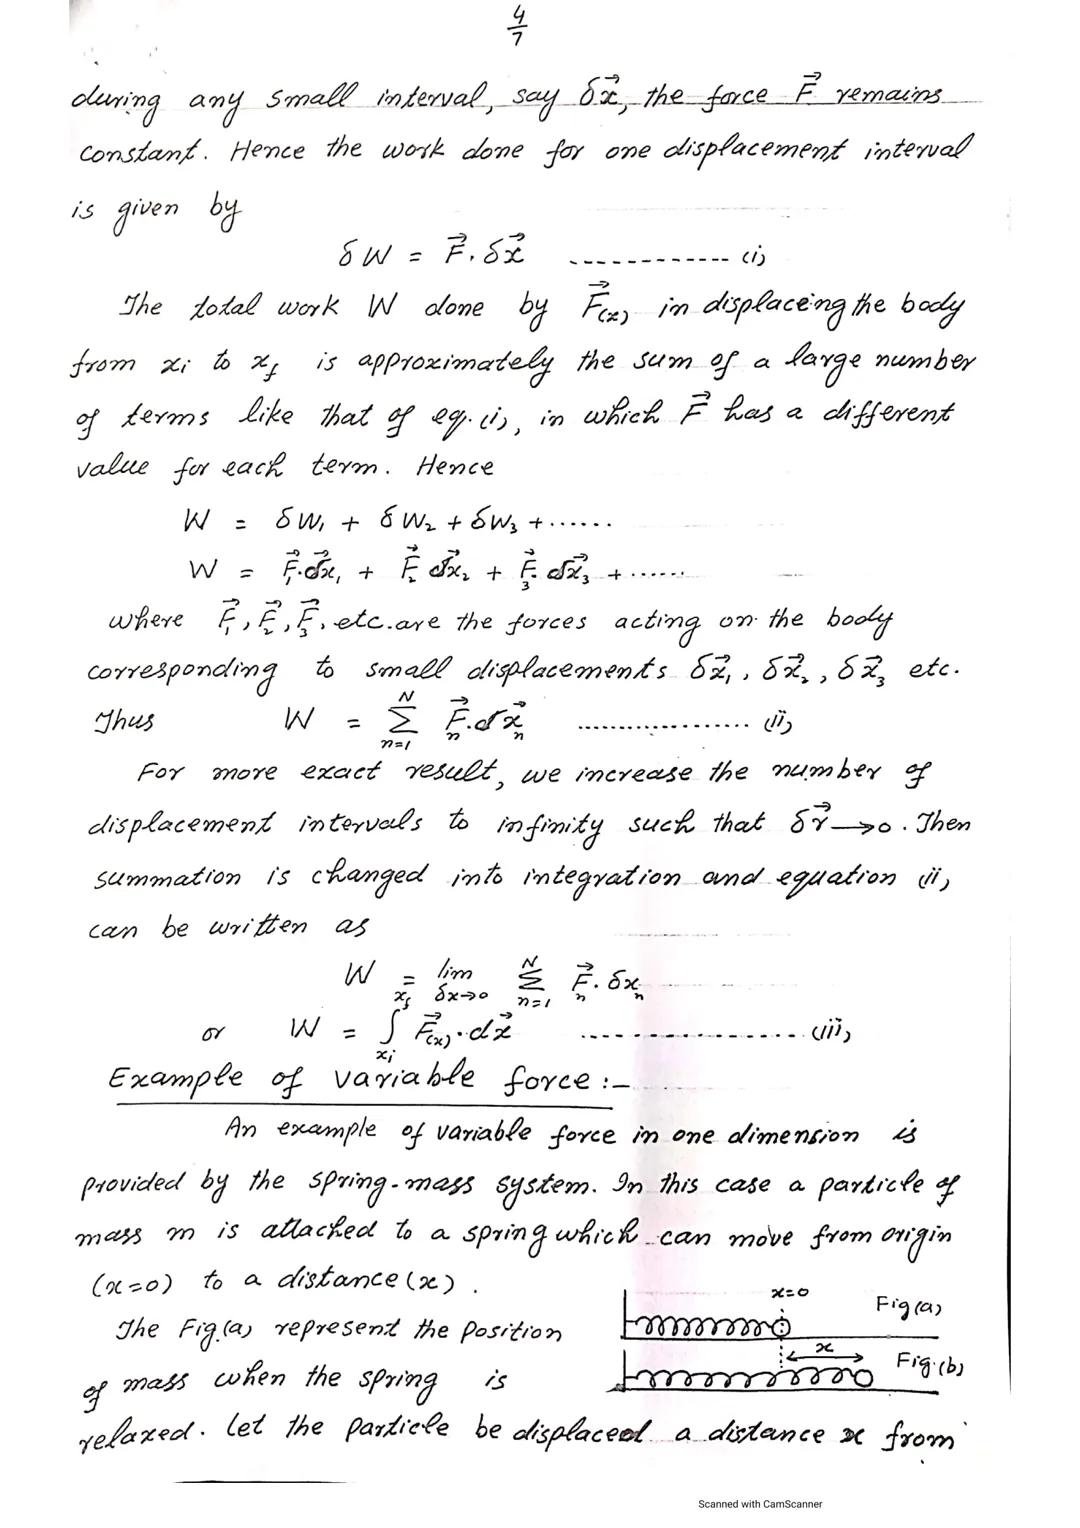 4/7
during any small interval, say δx⃗, the force F⃗ remains
constant. Hence the work done for one displacement interval
is given by
δW = F⃗. δx⃗ ------------- (i)
The total work W done by F⃗(x) in displaceing the body
from xi to xf is approximately the sum of a large number
of terms like that of eq.(i), in which F⃗ has a different
value for each term. Hence
W = δW₁ + δW₂ + δW₃ + ......
W = F⃗₁.δx⃗₁ + F⃗₂ δx⃗₂ + F⃗₃. δx⃗₃ + ......
where F⃗₁, F⃗₂, F⃗₃, etc. are the forces acting on the body
corresponding to small displacements δx⃗₁, δx⃗₂, δx⃗₃ etc.
Thus W = Σₙ₌₁ᴺ F⃗ₙ.δx⃗ₙ ................... (ii)
For more exact result, we increase the number of
displacement intervals to infinity such that δr⃗ → 0. Then
summation is changed into integration and equation (ii)
can be written as
W = lim δx→0 Σₙ₌₁ᴺ F⃗ₙ. δxₙ
or W = ∫ xi xf F⃗(x).dx⃗ ................... (iii)
Example of variable force :-
An example of variable force in one dimension is
provided by the spring-mass system. In this case a particle of
mass m is attached to a spring which can move from origin
(x=0) to a distance (x).
x=0 Fig(a)
The Fig.(a) represent the position
x Fig.(b)
of mass when the spring is
relaxed. Let the particle be displaced a distance x from
Scanned with CamScanner